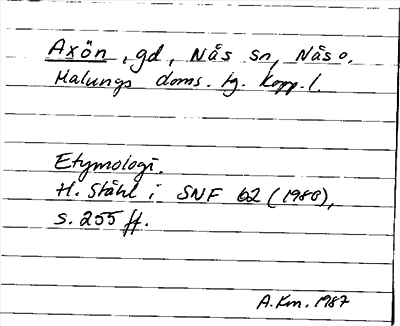 Axön, gd, Nås sn, Nås o.
Malungs doms. tg. Kopp. l.
Etymologi.
H. Ståhl i SNF 62 (1980),
s. 255 ff.
A.Km. 1987